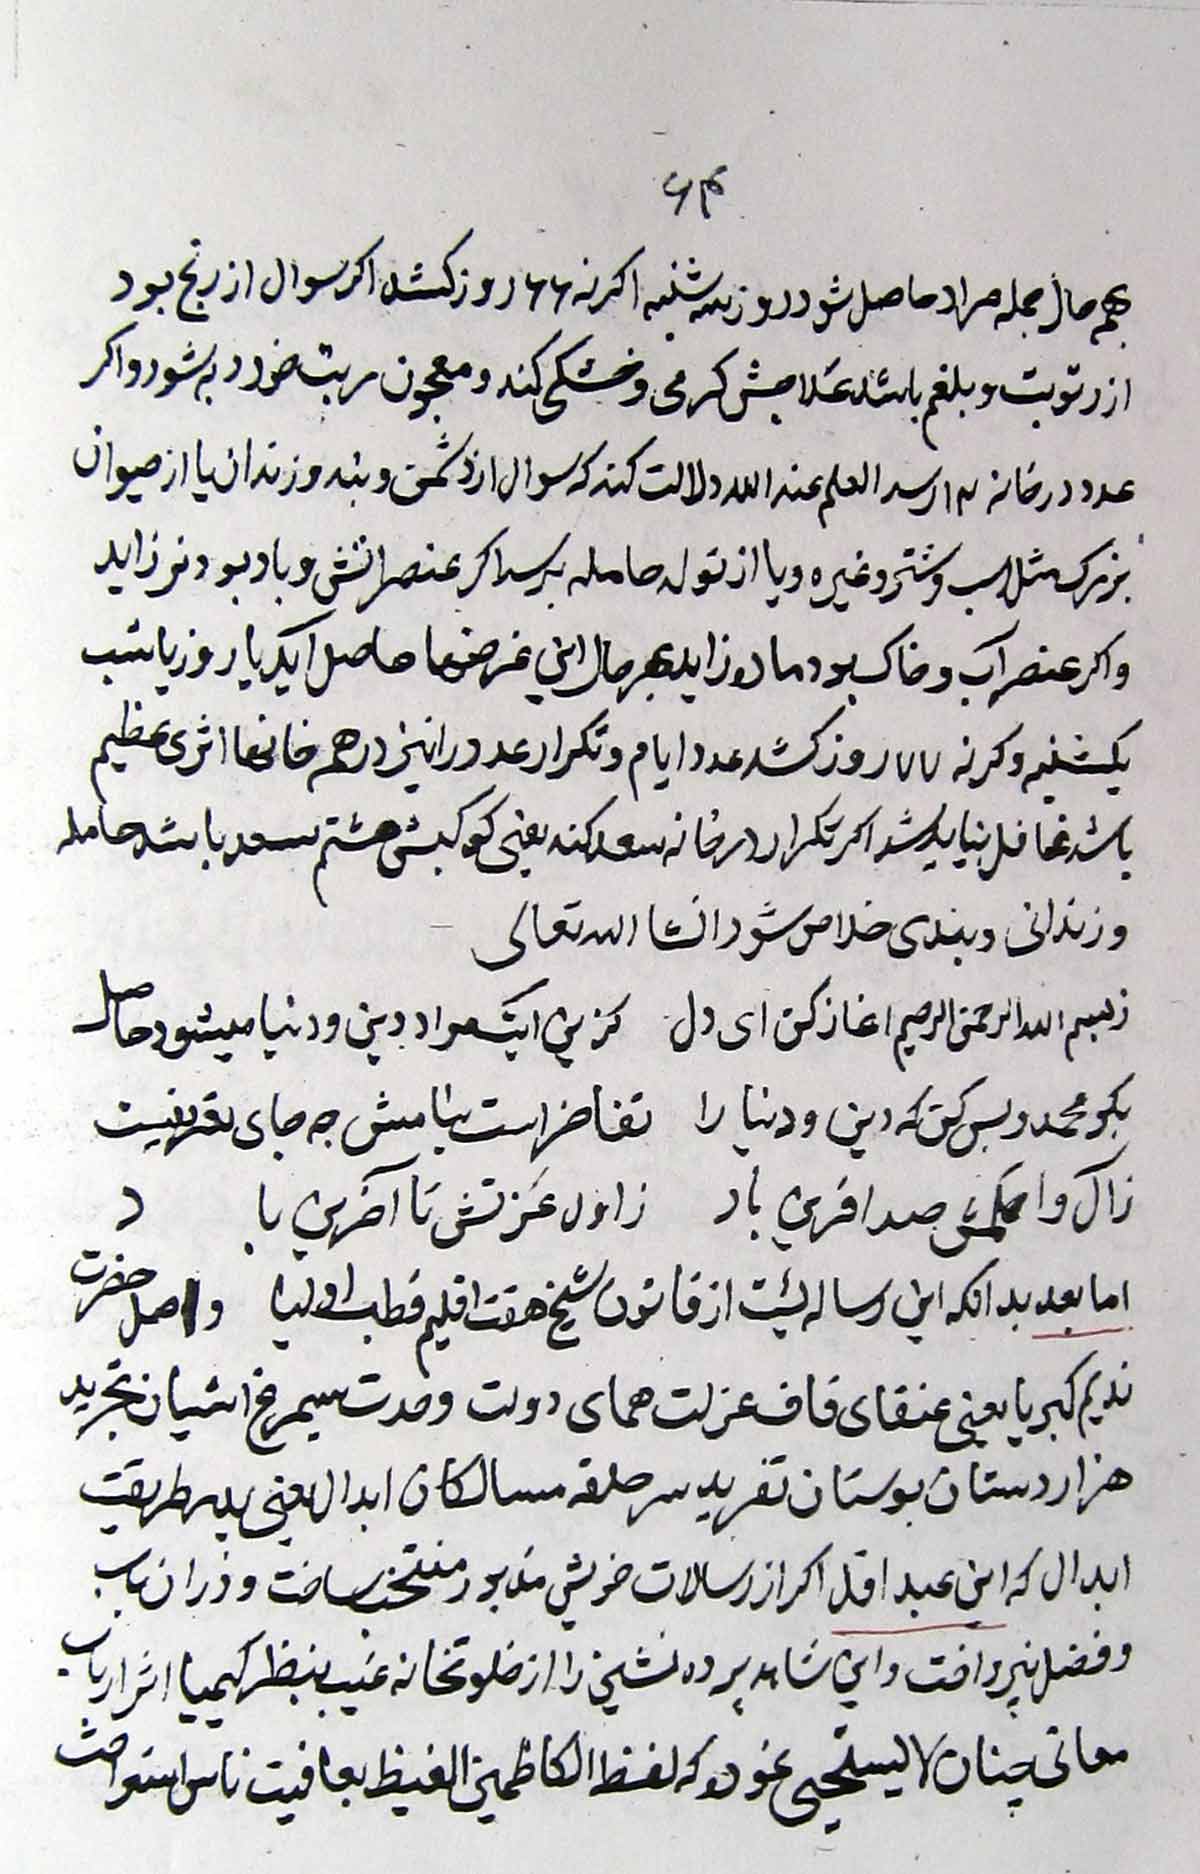 ۶۴
بهر حال جمله مراد حاصل شود روز سه شنبه اکر نه ۶۶ روز کشد اکر سوال از رنج بود
از رتوبت و بلغم باشد علاجش کرمی و خشکی کند و معجون مربت خورد به شود و اکر
عدد در خانه ۱۴ رسد العلم عند الله دلالت کند که سوال از دشمن و بند و زندان یا از حیوان
بزرک مثل اسب و شتر و غیره و یا از تولد حامله پرسد اکر عنصر اتش و باد بود نر زاید
و اکر عنصر آب و خاک بود ماده زاید بهر حال این غرضها حاصل آید یا روز یا شب
یکشنبه و کر نه ۷۷ روز کشد عدد ایام و تکرار عدد را نیز در هم خانها اثری عظیم
باشد غافل نباید شد اکر تکرار در خانه سعد کند یعنی کوکبش هشتم سعد باشد حامله
و زندانی و بندی خلاص شود انشا الله تعالی
ز بسم الله الرحمن الرحیم اغاز کن ای دل کزین ایت مراد دین و دنیا میشود حاصل
بکو محمد و بس کن که دین و دنیا را تفاخر است بنامش چه جای تقریفیست
ز آل و اصحابش صد افرین باد ز اول عزتش تا آخرین با د
اما بعد بدانکه این رساله ایست از قانون شیخ هفت اقلیم قطب اولیا و اصل حضرت
ندیم کبریا یعنی عنقای قاف عزلت همای دولت وحدت سیمرغ اشیان تجرید
هزار دستان بوستان تفرید سر حلقه مسالکان ابدال یعنی پیر طریقت
ابدال که این عبد اقل اکر از رسالات خویش مذبور منتخب ساخت و در ان باب
و فضل نپرداخت و این شاهد پرده نشین را از خلوتخانه غیب بنظر کیمیا اثر ارباب
معانی چنان لا یستحیی نمود که لفظ الکاظمین الغیظ بعافیت ناس استراحت